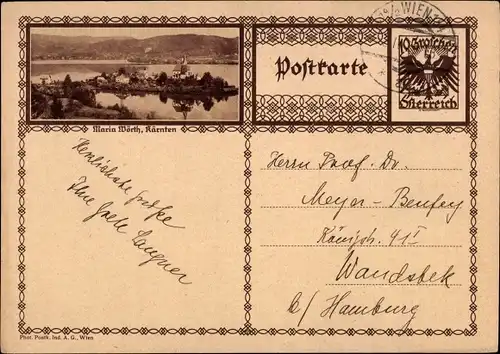 WIEN
Postkarte
10 Groschen
Österreich
Maria Wörth, Kärnten
Herzlichste Grüße
Ihre Grete Langner
Herrn Prof. Dr.
Meyer-Benfey
Königstr. 41 I
Wandsbek
b/ Hamburg
Phot. Postk. Ind. A. G., Wien